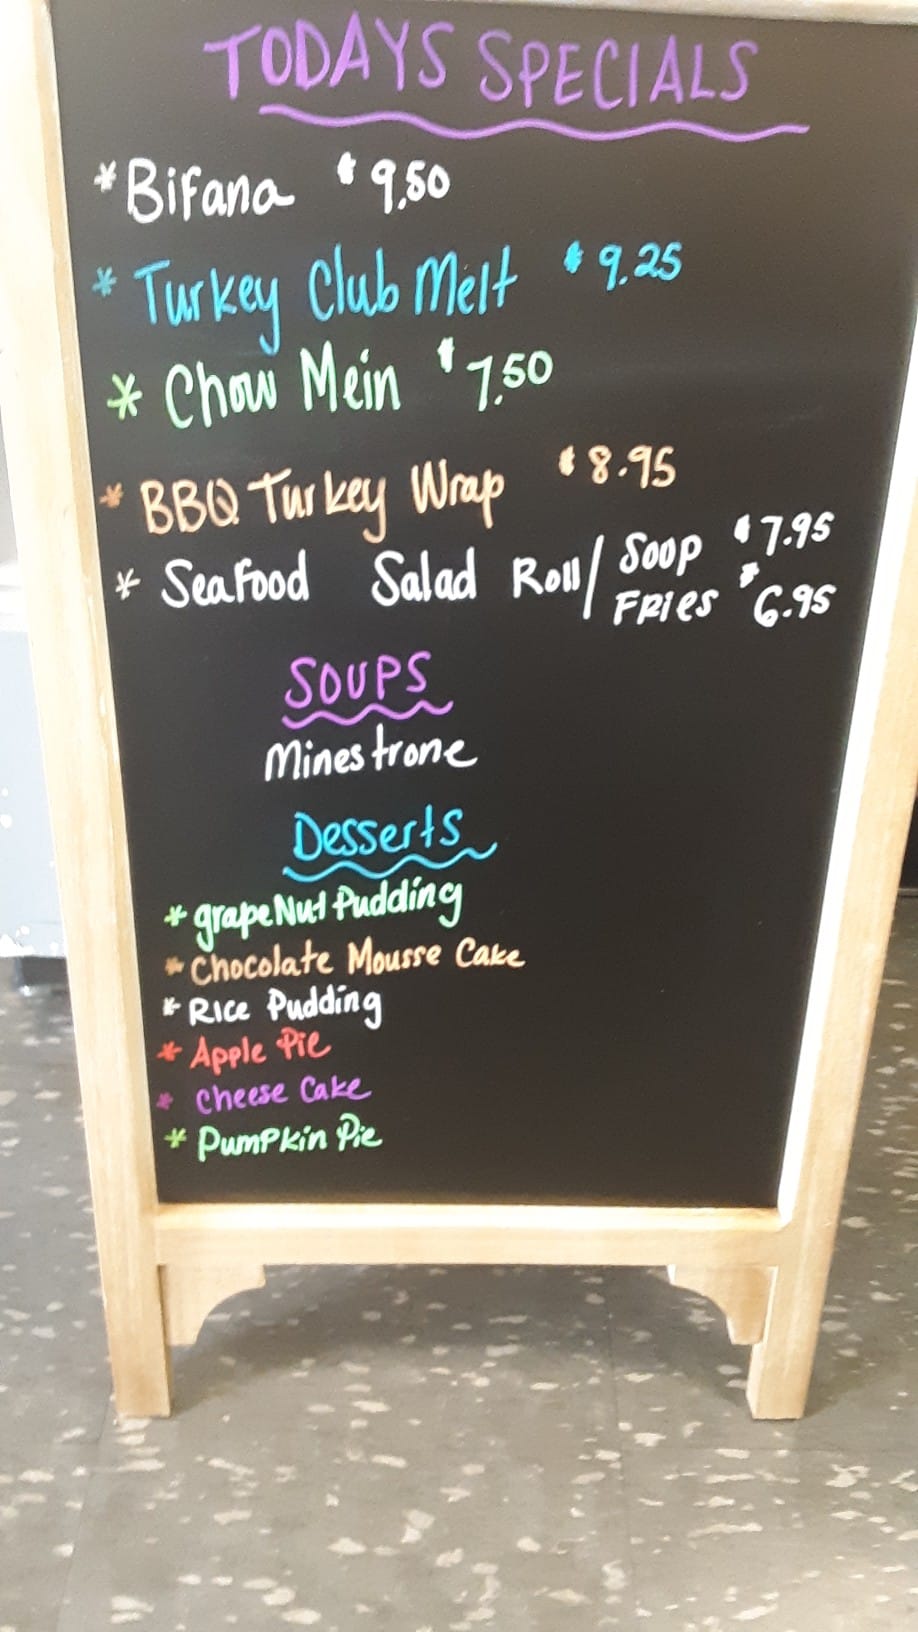 TODAYS SPECIALS
* Bifana $9.50
* Turkey Club Melt $9.25
* Chow Mein $7.50
* BBQ Turkey Wrap $8.95
* Seafood Salad Roll / Soop $7.95
Fries $6.95
SOUPS
Minestrone
Desserts
* grapeNut Pudding
* Chocolate Mousse Cake
* Rice Pudding
* Apple Pie
* Cheese Cake
* Pumpkin Pie